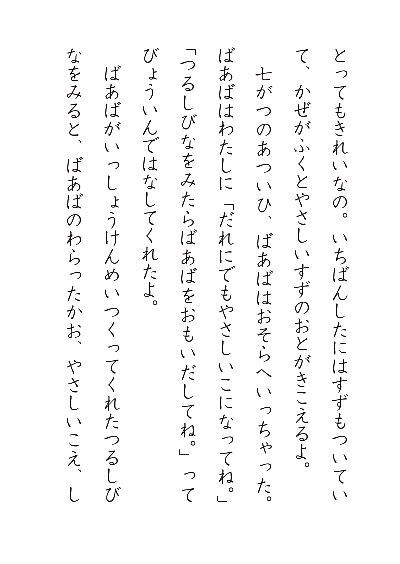 とってもきれいなの。いちばんしたにはすずもついてい
て、かぜがふくとやさしいすずのおとがきこえるよ。
七がつのあついひ、ばあばはおそらへいっちゃった。
ばあばはわたしに「だれにでもやさしいこになってね。」
「つるしびなをみたらばあばをおもいだしてね。」って
びょういんではなしてくれたよ。
ばあばがいっしょうけんめいつくってくれたつるしび
なをみると、ばあばのわらったかお、やさしいこえ、し